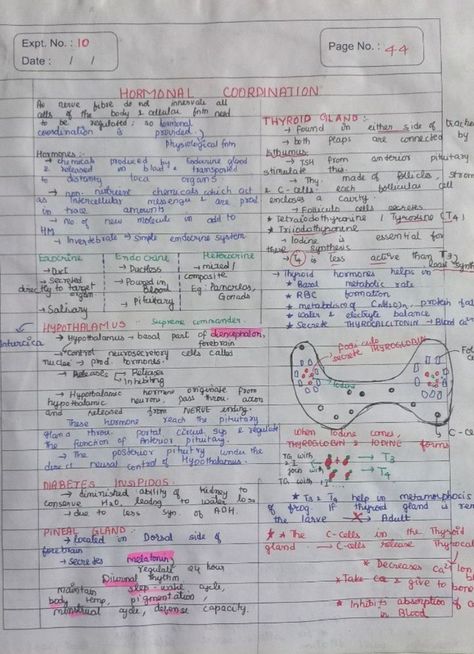 Expt. No. : 10
Date : / /
Page No. : 44
HORMONAL COORDINATION
As nerve fibre do not innervate all
cells of the body & cellular fntn need
to be regulated; so hormonal
coordination is provided.
Physiological fntn
Hormones:-
→ chemicals produced by Endocrine gland
& released in blood & transported
to distantly loca organs
→ non-nutrient chemicals which act
as intercellular messenger & are prod
in trace amounts
→ no of new molecules in add to
HM
→ Invertebrate → simple endocrine system
Exocrine
→ Duct
→ Secreted
directly to target
organ
→ Salivary
Endocrine
→ Ductless
→ Poured in
Blood
→ Pituitary
Heterocrine
→ mixed/
composite
Eg: Pancreas,
Gonads
HYPOTHALAMUS Supreme commander.
→ Hypothalamus → basal part of diencephalon,
forebrain
→ Control neurosecretory cells called
nuclee → prod hormones.
→ Releases Releases
Inhibiting
→ Hypothalamic hormone originate from
hypothalamic neurons, pass throu. axon
and released from NERVE ending.
These hormone reach the pituitary
gland throu. portal circu. sys & regulate
the function of Anterior pituitary.
→ The posterior pituitary under the
direct neural control of Hypothalamus.
DIABETES INSIPIDUS
→ diminished ability of kidney to
conserve H₂O, leading to water loss
→ due to less syn. of ADH.
PINEAL GLAND:
→ located in Dorsal side of
forebrain
→ Secretes melatonin
regulate 24 hour
Diurnal rhythm
Maintain sleep-wake cycle,
body temp, pigmentation,
menstrual cycle, defense capacity.
THYROID GLAND:-
→ Found in either side of trachea
→ both flaps are connected by
Isthumus.
→ TSH from anterior pituitary
stimulate this.
→ Thy. made of follicles,
& C-cells. each follicular cell
encloses a cavity.
→ Follicular cells secretes
* Tetraiodothyronine / Thyroxine (T4)
* Triiodothyronine
→ Iodine is essential for
there synthesis
→ T4 is less active than T3
→ Thyroid hormones helps in
* Basal metabolic rate
* RBC formation
* metabolism of Carbs, protein fat
* Water & electrolyte balance
* Secrete THYROCALCITONIN → Blood
Follicular
secretes THYROGLOBIN
Iodine
When Iodine comes,
THYROGLOBIN → IODINE forms
→ T3
→ T4
* T3 & T4 help in metamorphosis
of frog. If thyroid gland is rem
the larve ✗→ Adult
* * The C-cells in the Thyroid
gland → C-cells release
* Decreases Ca²⁺ Ion
* Take Ca & give to bone
* Inhibits absorption of
in Blood